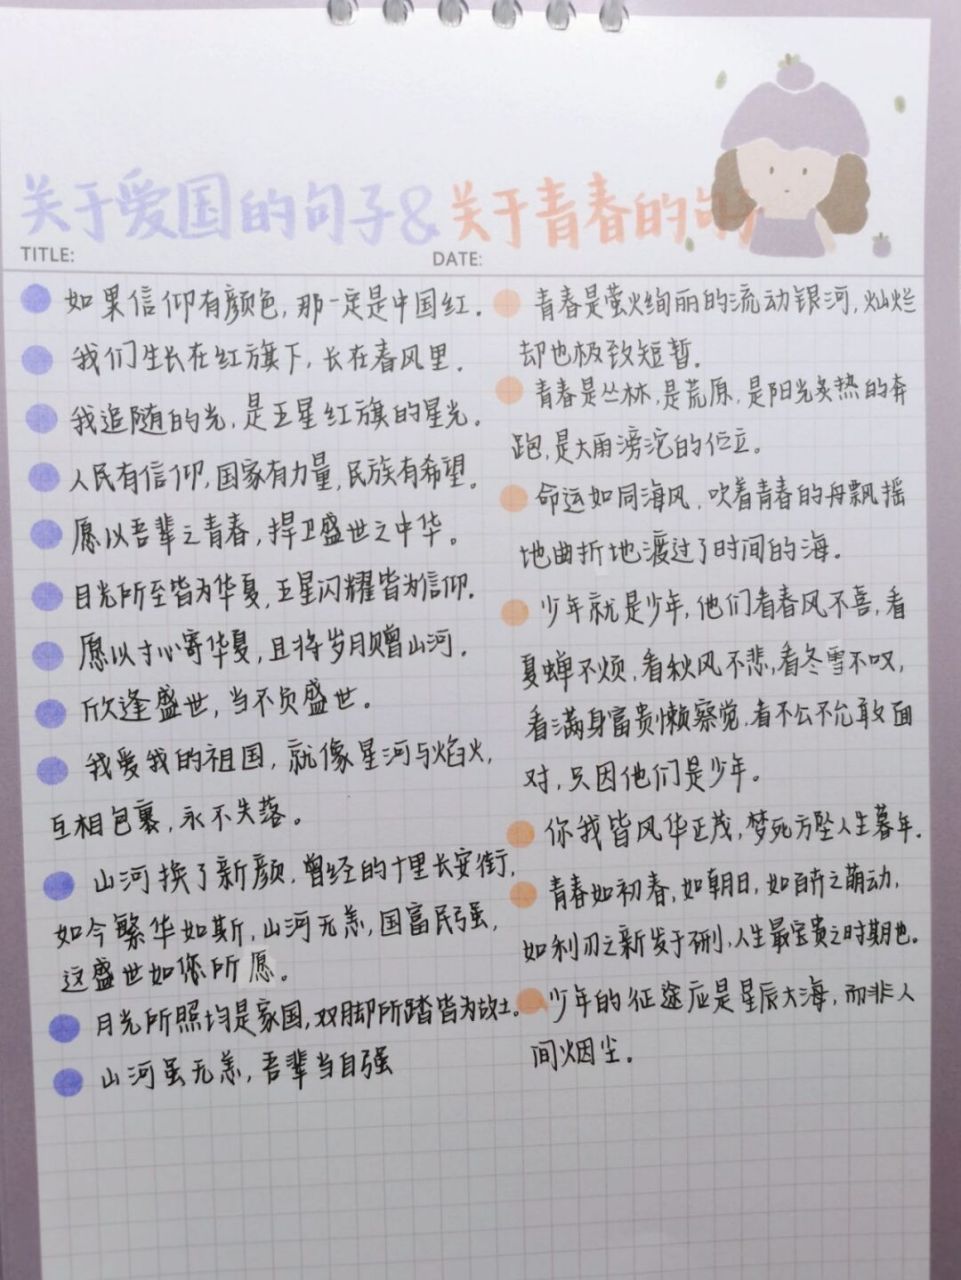 关于爱国的句子&关于青春的句
TITLE:
DATE:
如果信仰有颜色,那一定是中国红.
我们生长在红旗下,长在春风里.
我追随的光,是五星红旗的星光。
人民有信仰,国家有力量,民族有希望。
愿以吾辈之青春,捍卫盛世之中华。
目光所至皆为华夏,五星闪耀皆为信仰.
愿以寸心寄华夏,且将岁月赠山河.
欣逢盛世,当不负盛世。
我爱我的祖国,就像星河与焰火,
互相包裹,永不失落。
山河换了新颜,曾经的十里长安街,
如今繁华如斯,山河无恙,国富民强,
这盛世如您所愿。
月光所照均是家国,双脚所踏皆为故土。
山河虽无恙,吾辈当自强
青春是萤火绚丽的流动银河,灿烂
却也极致短暂.
青春是丛林,是荒原,是阳光炙热的奔
跑,是大雨滂沱的伫立。
命运如同海风,吹着青春的舟飘摇
地曲折地渡过了时间的海.
少年就是少年,他们看春风不喜,看
夏蝉不烦,看秋风不悲,看冬雪不叹,
看满身富贵懒察觉,看不公不允敢面
对,只因他们是少年。
你我皆风华正茂,梦死方坠人生暮年.
青春如初春,如朝日,如百卉之萌动,
如利刃之新发于硎,人生最宝贵之时期也。
少年的征途应是星辰大海,而非人
间烟尘.